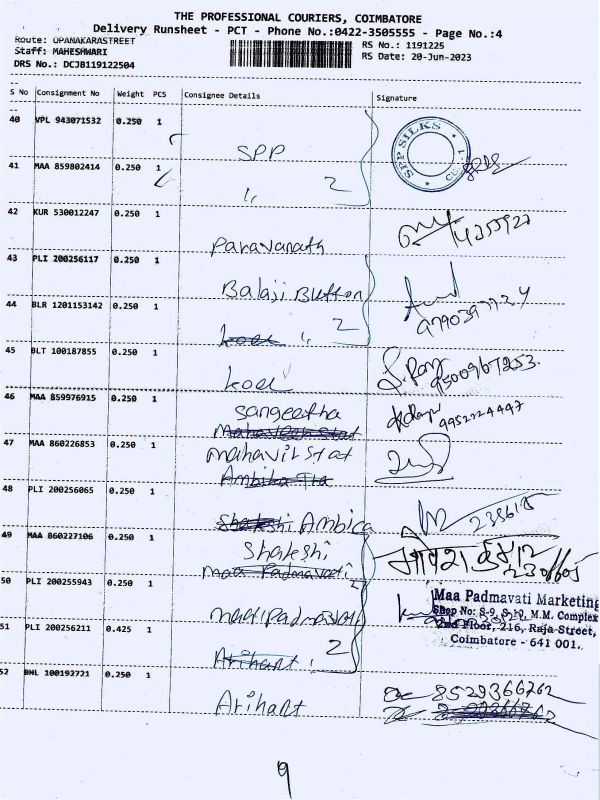 THE PROFESSIONAL COURIERS, COIMBATORE
Delivery Runsheet - PCT - Phone No.:0422-3505555 - Page No.:4
Route: OPANAKARASTREET
RS No.: 1191225
Staff: MAHESHWARI
RS Date: 20-Jun-2023
DRS No.: DCJB119122504
S No Consignment No Weight PCS Consignee Details Signature
40 VPL 943071532 0.250 1
SPP
SPP SILKS
41 MAA 859802414 0.250 1
2
42 KUR 530012247 0.250 1
43 PLI 200256117 0.250 1
Balaji Button
9790397724
44 BLR 1201153142 0.250 1
2
45 BLT 100187855 0.250 1
9500967253.
46 MAA 859976915 0.250 1
Sangeetha
9952224447
47 MAA 860226853 0.250 1
48 PLI 200256065 0.250 1
Ambica
49 MAA 860227106 0.250 1
Shateshi
50 PLI 200255943 0.250 1
Maa Padmavati Marketing
Shop No: S-9, S-10, M.M. Complex
2nd Floor, 216, Raja Street,
Coimbatore - 641 001.
51 PLI 200256211 0.425 1
Arihant
2
52 BNL 100192721 0.250 1
Arihant
8529366262
9